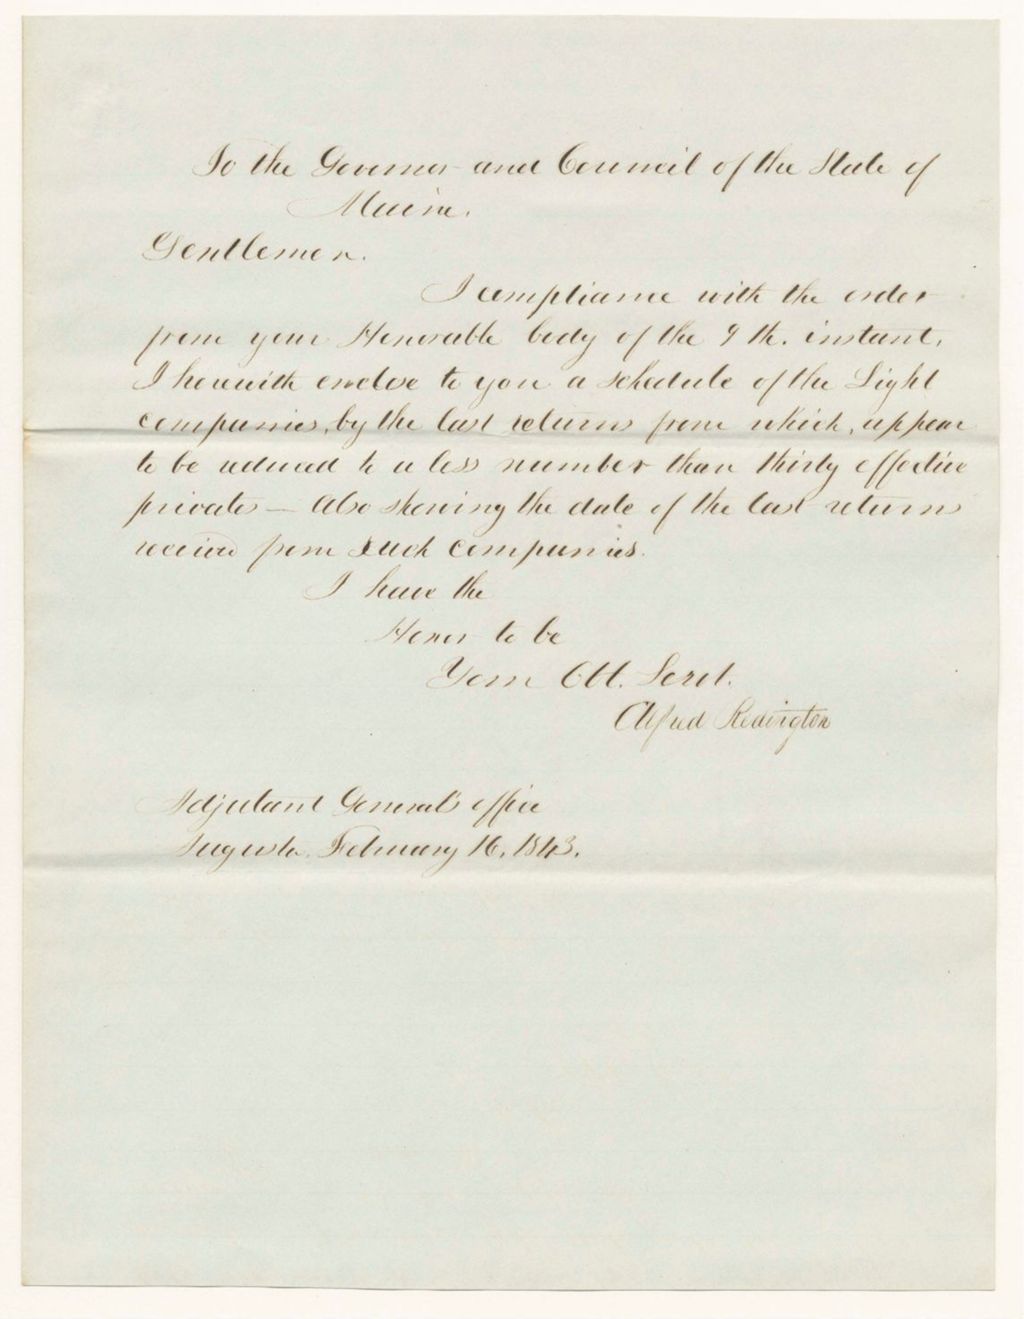 To the Governor and Council of the State of
Maine.
Gentlemen.
I compliance with the order
from your Honorable body of the 9 th. instant,
I herewith enclose to you a schedule of the Light
companies, by the last returns from which, appear
to be reduced to a less number than thirty effective
privates — Also showing the date of the last returns
received from such companies.
I have the
Honor to be
Your Obt. Servt.
Alfred Redington
Adjutant General's office
Augusta. February 16. 1843.